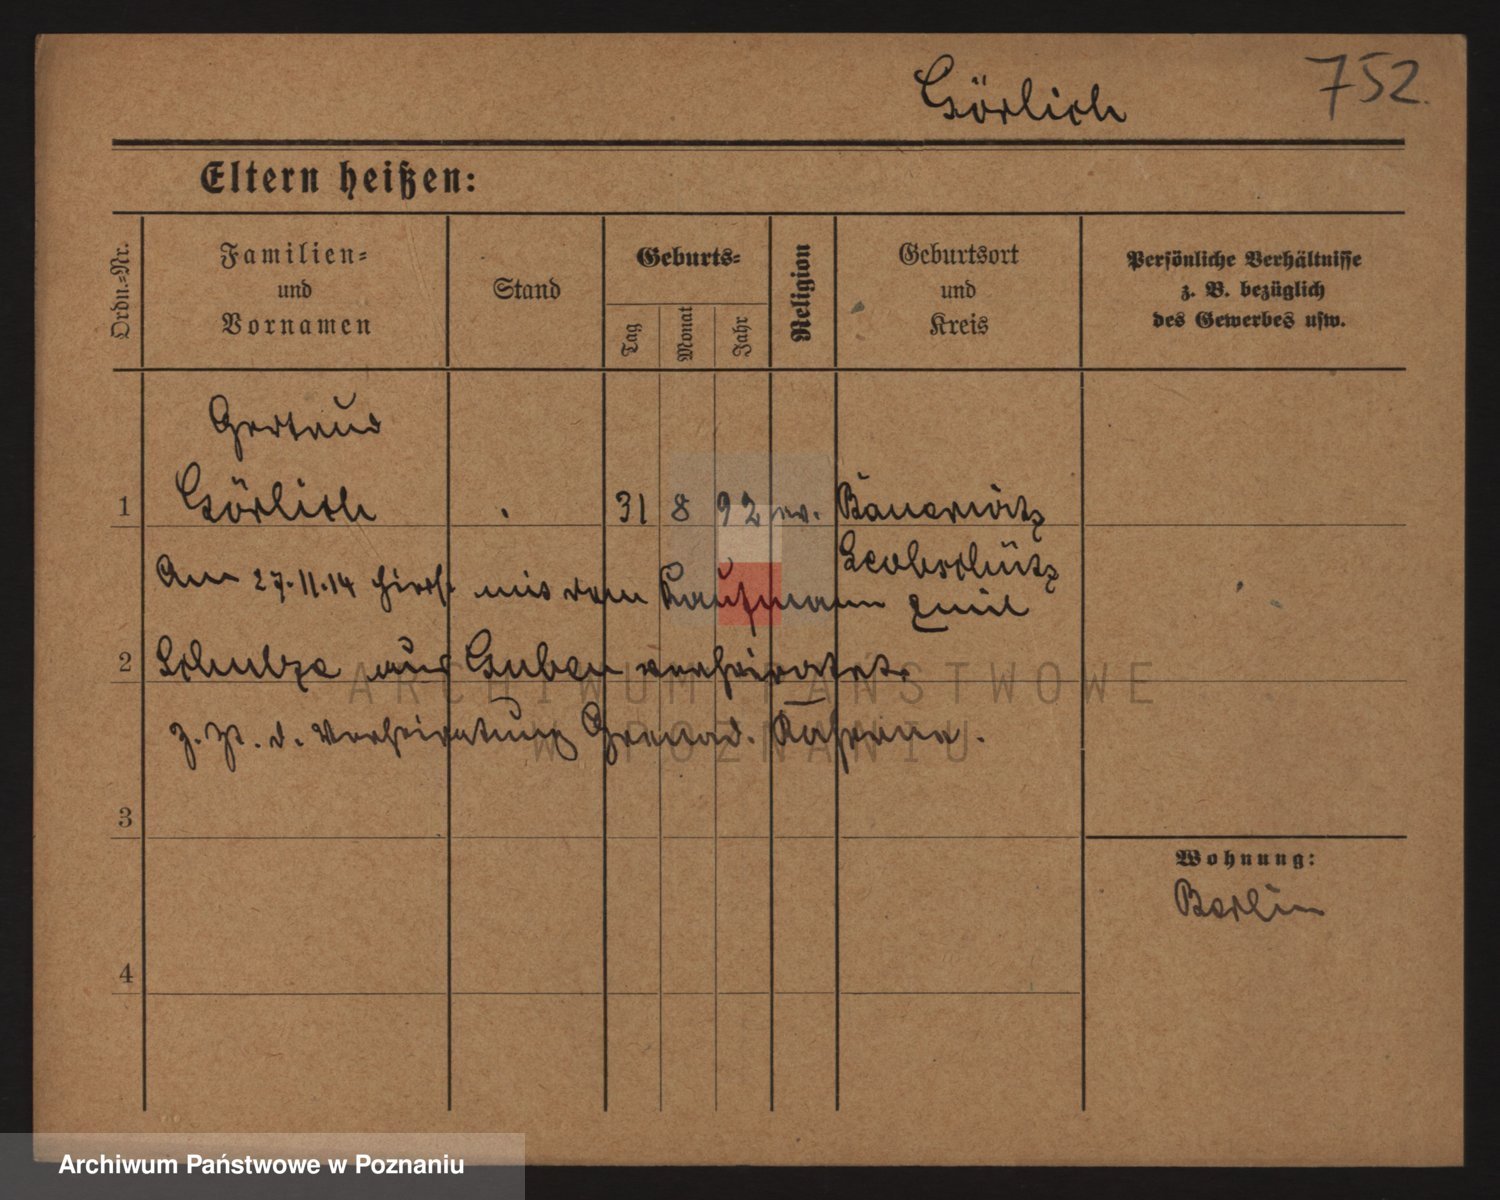 Görlich 752.
Eltern heißen:
Ordn.=Nr.
Familien=
und
Vornamen
Stand
Geburts=
Tag
Monat
Jahr
Religion
Geburtsort
und
Kreis
Persönliche Verhältnisse
z. B. bezüglich
des Gewerbes usw.
Gertrud
1 Görlich 31 8 92 ev. Bauerwitz
Leobschütz
Am 27.11.14 hies. mit dem Kaufmann Emil
2 Schulze aus Guben verheiratet.
z. Zt. d. Verheiratung Grenad. Kaserne.
3
Wohnung:
Berlin
4
ARCHIWUM PAŃSTWOWE
W POZNANIU
Archiwum Państwowe w Poznaniu